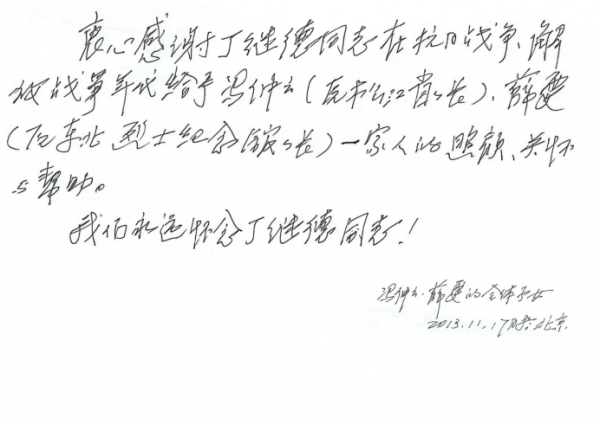 衷心感谢丁继德同志在抗日战争、解
放战争年代给予冯仲云(原松江省省长)、薛雯
(原东北烈士纪念馆馆长)一家人的照顾、关怀
与帮助。
我们永远怀念丁继德同志!
冯仲云、薛雯的全体子女
2013.11.17于北京